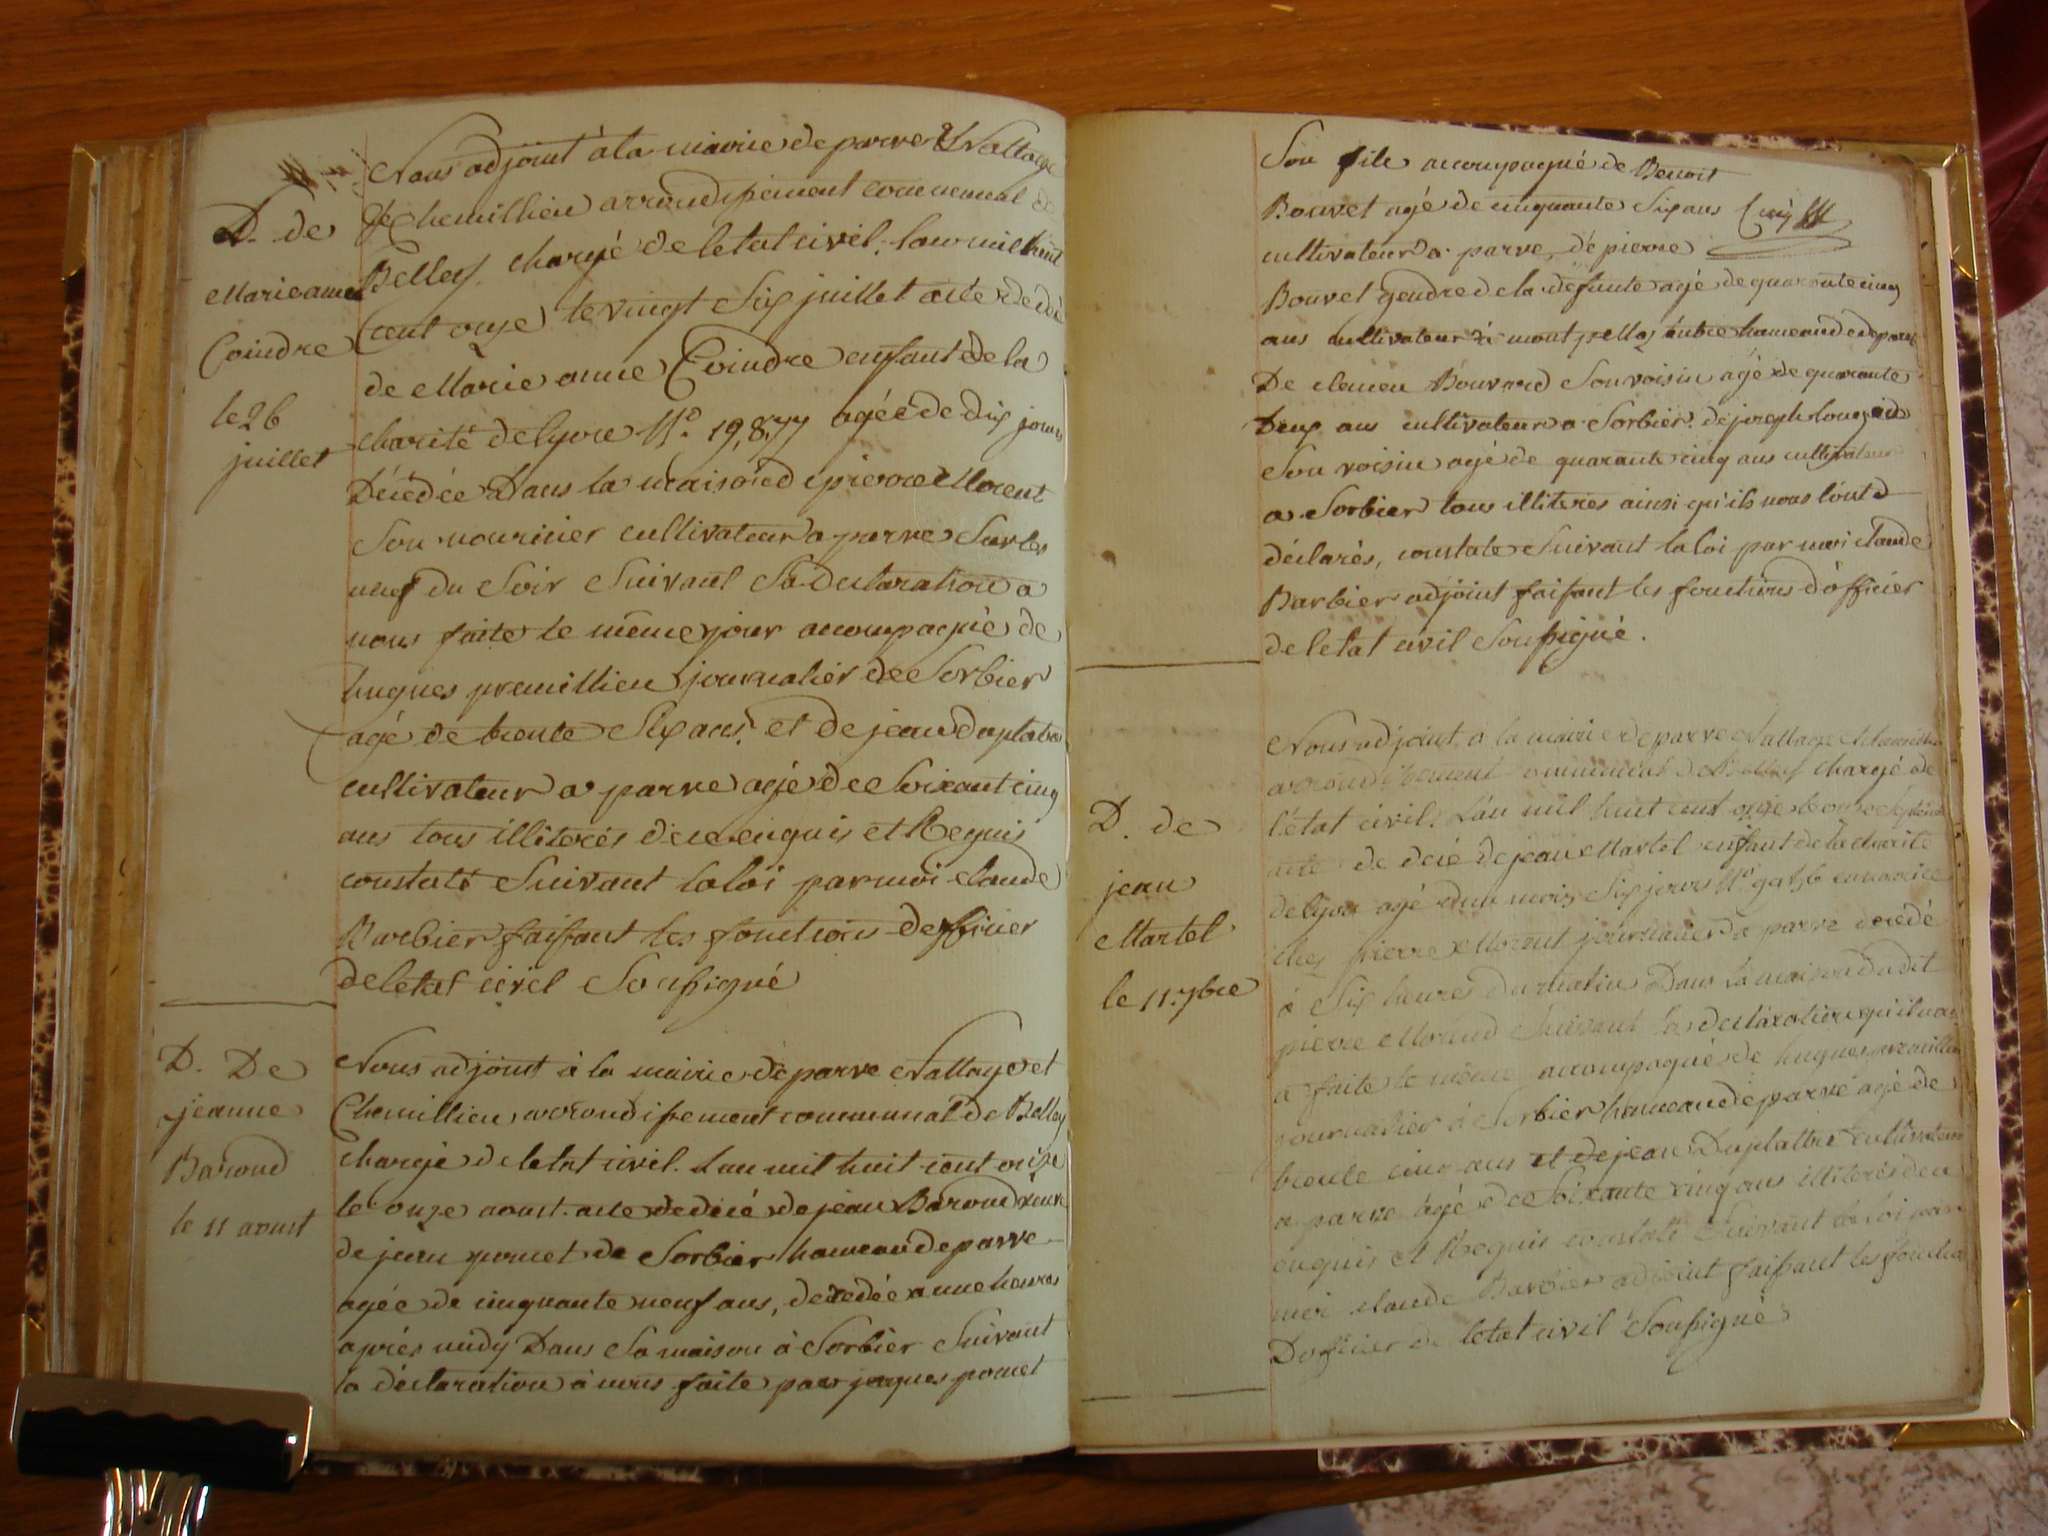 D. de
Marie anne
Coindre
le 26
juillet
Nous adjoint à la mairie de parve Nattage
et Chemillieu arrondissement communal de
Belley chargé de letat civil. lan mil huit
cent onze le vingt Six juillet acte de dé
de Marie anne Coindre enfant de la
charité de lyon N.o 19,877 agée de dix jours
Décédée Dans la maison de pierre Morent
Son nouricier cultivateur a parve Sur les
neuf du Soir Suivant Sa declaration a
nous faite le même jour accompagné de
hugues premillieu journalier de Sorbier
agé de trente Six ans. et de jean Duplatre
cultivateur a parve agé de Soixant cinq
ans tous illiterés de ce enquis et Requis
constaté Suivant la loi par moi claude
Barbier faisant les fonctions Dofficier
de letat civil Soussigné
D. De
jeanne
Baroud
le 11 aoust
Nous adjoint à la mairie de parve Nattage et
Chemillieu arrondissement communal de Belley
chargé de letat civil. Lan mil huit cent onze
le onze aoust. acte de décé de jean Baroud veuve
de jean pomet de Sorbier hameau de parve
agée de cinquante neuf ans, decedée a une heures
après midy Dans Sa maison à Sorbier Suivant
la déclaration à nous faite par jaques pomet
Son fils accompagné de Benoit
Bouvet agé de cinquante Six ans
cultivateur a parve, de pierre
Bouvet gendre de la defunte agé de quarante cinq
ans cultivateur à montpellaz autre hameau de parve
De clemen Bouvard Son voisin agé de quarante
Deux ans cultivateur a Sorbier. de joseph
Son voisin agé de quarante cinq ans cultivateur
a Sorbier tous illiterés ainsi qu'ils nous l'ont
déclarés, constate Suivant la loi par moi claude
Barbier adjoint faisant les fonctions d'officier
de letat civil Soussigné.
D. de
jean
Martel
le 11. 7bre
Nous adjoint a la mairie de parve Nattage et Chemillieu
arrondissement communal de Belley chargé de
l'état civil. L'an mil huit cent onze le onze Septembre
acte de décé de jean Martel enfant de la charité
de lyon agé dun mois Six jours N.o en nourice
chez pierre Morent journalier a parve décédé
à Six heures du matin Dans la maison dudit
pierre Morand Suivant la declaration qu'il nous
a faite le même accompagné de hugues premillieu
journalier à Sorbier hameau de parve agé de
trente cinq ans et de jean Duplattre cultivateur
a parve agé de Soixante cinq ans illiterés de ce
enquis et Requis constaté Suivant la loi par
moi claude Barbier adjoint faisant les fonctions
Dofficier de letat civil Soussigné